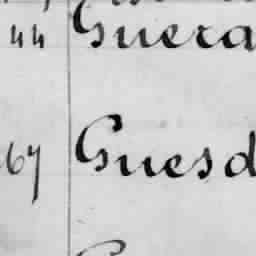 44 Guera
67 Guesd